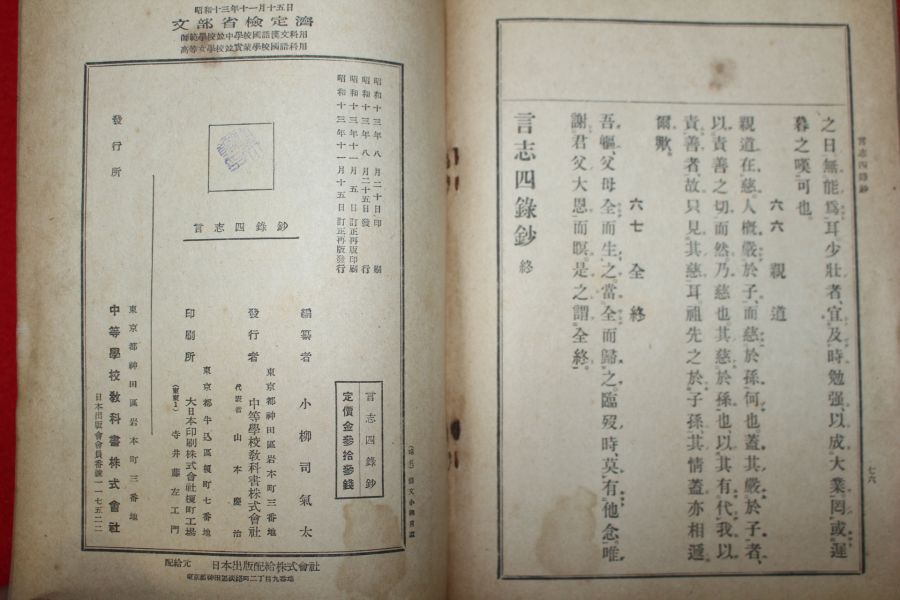 言志四錄鈔
七六
之日無能爲耳少壯者、宜及時勉强、以成大業罔或遲
暮之嘆可也。
六六 親道
親道在慈。人槪嚴於子、而慈於孫何也。蓋其嚴於子者、
以責善之切而然乃慈也其慈於孫也、以其有代我以
責善者、故只見其慈耳祖先之於子孫其情蓋亦相邇
爾歟。
六七 全終
吾軀、父母全而生之、當全而歸之臨歿時、莫有他念、唯
謝君父大恩而瞑。是之謂全終。
言志四錄鈔 終
昭和十三年十一月十五日
文部省檢定濟
師範學校竝中學校國語漢文科用
高等女學校竝實業學校國語科用
昭和十三年八月二十日印刷
昭和十三年八月二十五日發行
昭和十三年十一月五日訂正再版印刷
昭和十三年十一月十五日訂正再版發行
言志四錄鈔
言志四錄鈔
定價金參拾參錢
編纂者 小柳司氣太
東京都神田區岩本町三番地
發行者 中等學校敎科書株式會社
代表者 山本慶治
東京都牛込區榎町七番地
印刷所 大日本印刷株式會社榎町工場
(東東1) 寺井藤左工門
發行所
東京都神田區岩本町三番地
中等學校敎科書株式會社
日本出版會會員番號一一七五二二
配給元 日本出版配給株式會社
東京都神田區淡路町二丁目九番地